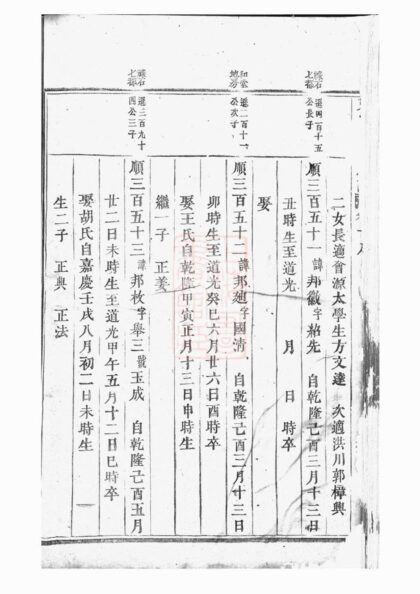 二女長適會源太學生方文達　次適洪川郭樟興
遜四百十五
公長子
順三百五十一諱邦觀字紹先　自乾隆己酉三月十三日
丑時生至道光　月　日　時卒
娶
遜一百十一
公次子
順三百五十二諱邦廸字國清、自乾隆己酉三月十三日
卯時生至道光癸巳六月廿六日酉時卒
娶王氏自乾隆甲寅正月十三日申時生
繼一子　正姜
遜三百九十
四公三子
順三百五十三諱邦枚字舉三號玉成　自乾隆己酉五月
廿二日未時生至道光甲午五月十二日巳時卒
娶胡氏自嘉慶壬戌八月初二日未時生
生二子　正典　正法